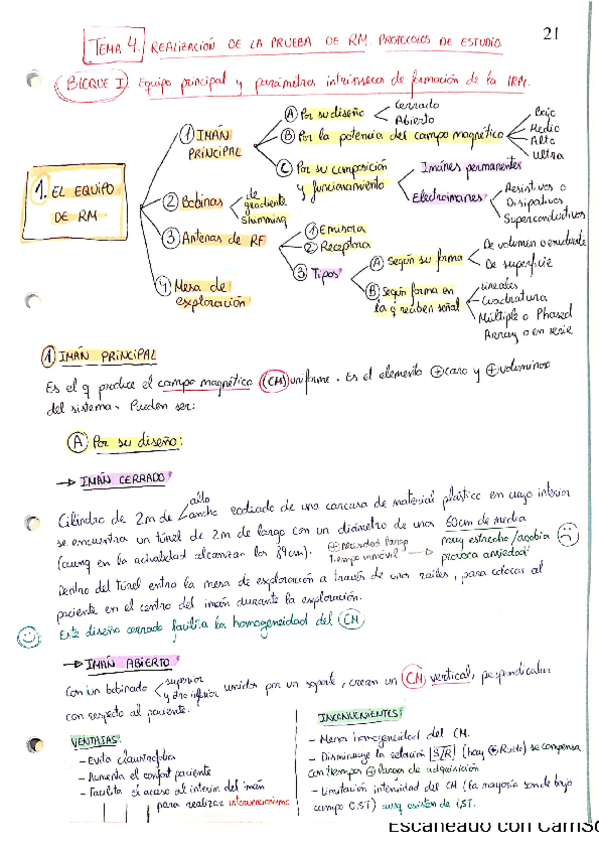 21
TEMA 4. REALIZACIÓN DE LA PRUEBA DE RM. PROTOCOLOS DE ESTUDIO
BLOQUE I: Equipo principal y parámetros intrínsecos de formación de la IRM.
1. EL EQUIPO DE RM
① IMÁN PRINCIPAL
Ⓐ Por su diseño
Cerrado
Abierto
Ⓑ Por la potencia del campo magnético
Bajo
Medio
Alto
Ultra
Ⓒ Por su composición y funcionamiento
Imánes permanentes
Electroimanes
Resistivos o
Disipativos
Superconductivos
② Bobinas
de gradiente
Shimming
③ Antenas de RF
① Emisora
② Receptora
③ Tipos
Ⓐ Según su forma
De volumen o
De superficie
Ⓑ Según forma en la q reciben señal
Lineales
Cuadratura
Múltiple o Phased
Array o en serie
④ Mesa de exploración
① IMÁN PRINCIPAL
Es el q produce el campo magnético (CM) uniforme. Es el elemento ⊕ caro y ⊕ voluminoso
del sistema. Pueden ser:
Ⓐ Por su diseño:
→ IMÁN CERRADO
Cilindro de 2m de alto ancho rodeado de una carcasa de material plástico en cuyo interior
se encuentra un túnel de 2m de largo con un diámetro de unos 60cm de media
(aunq en la actualidad alcanzan los cm). ⊕ largo tiempo inmóvil → muy estrecho/agobia provoca ansiedad
Dentro del túnel entra la mesa de exploración a través de unos raíles, para colocar al
paciente en el centro del imán durante la exploración.
Este diseño cerrado facilita la homogeneidad del CM
→ IMÁN ABIERTO
Con un bobinado superior y otro inferior unidos por un soporte, crean un CM vertical, perpendicular
con respecto al paciente.
VENTAJAS:
- Evita claustrofobia
- Aumenta el confort paciente
- Facilita el acceso al interior del imán
para realizar intervencionismo
INCONVENIENTES:
- Menor homogeneidad del CM.
- Disminuye la relación S/R (hay ⊕ Ruido) se compensa
con tiempos ⊕ largos de adquisición
- Limitación intensidad del CM (la mayoría son de bajo
campo 0,5T) aunq existen de 1,5T.
Escaneado con CamSc